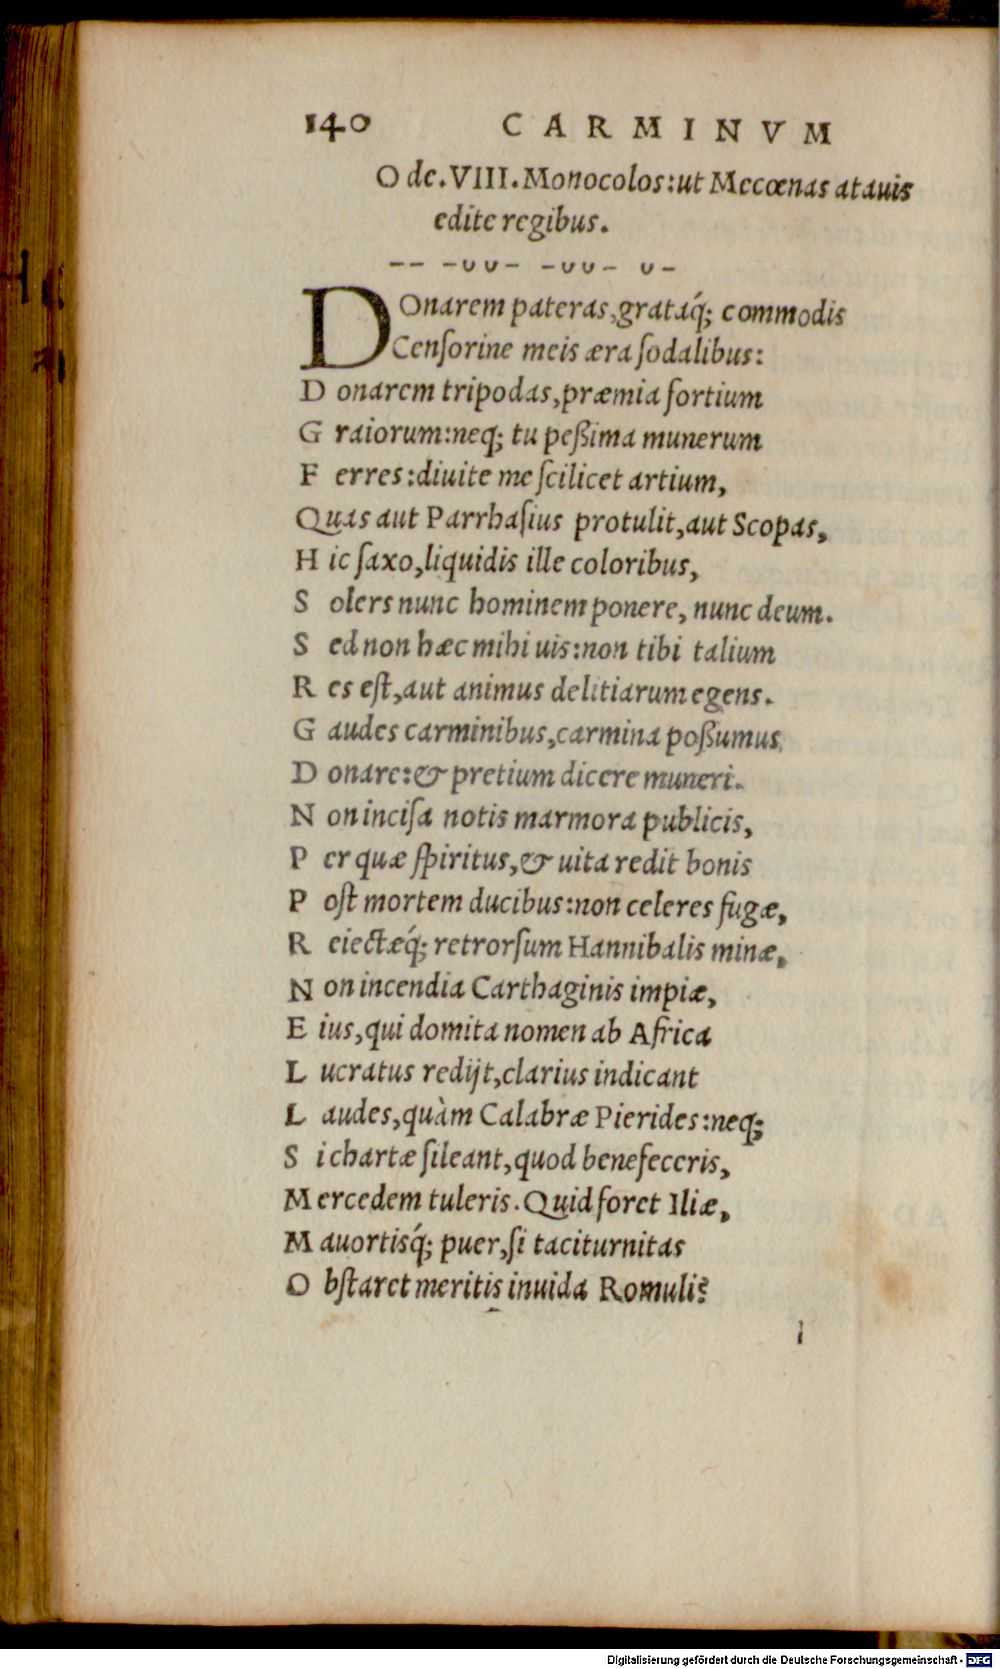 140 CARMINVM
Ode. VIII. Monocolos: ut Mecœnas atauis
edite regibus.
-- -∪∪- -∪∪- ∪-
DOnarem pateras, grataq́; commodis
Censorine meis æra sodalibus:
Donarem tripodas, præmia fortium
Graiorum: neq; tu peßima munerum
Ferres: diuite me scilicet artium,
Quas aut Parrhasius protulit, aut Scopas,
Hic saxo, liquidis ille coloribus,
Solers nunc hominem ponere, nunc deum.
Sed non hæc mihi uis: non tibi talium
Res est, aut animus delitiarum egens.
Gaudes carminibus, carmina poßumus
Donare: & pretium dicere muneri.
Non incisa notis marmora publicis,
Per quæ spiritus, & uita redit bonis
Post mortem ducibus: non celeres fugæ,
Reiectæq́; retrorsum Hannibalis minæ,
Non incendia Carthaginis impiæ,
Eius, qui domita nomen ab Africa
Lucratus redijt, clarius indicant
Laudes, quàm Calabræ Pierides: neq;
Si chartæ sileant, quod benefeceris,
Mercedem tuleris. Quid foret Iliæ,
Mauortisq́; puer, si taciturnitas
Obstaret meritis inuida Romuli?
Digitalisierung gefördert durch die Deutsche Forschungsgemeinschaft - DFG